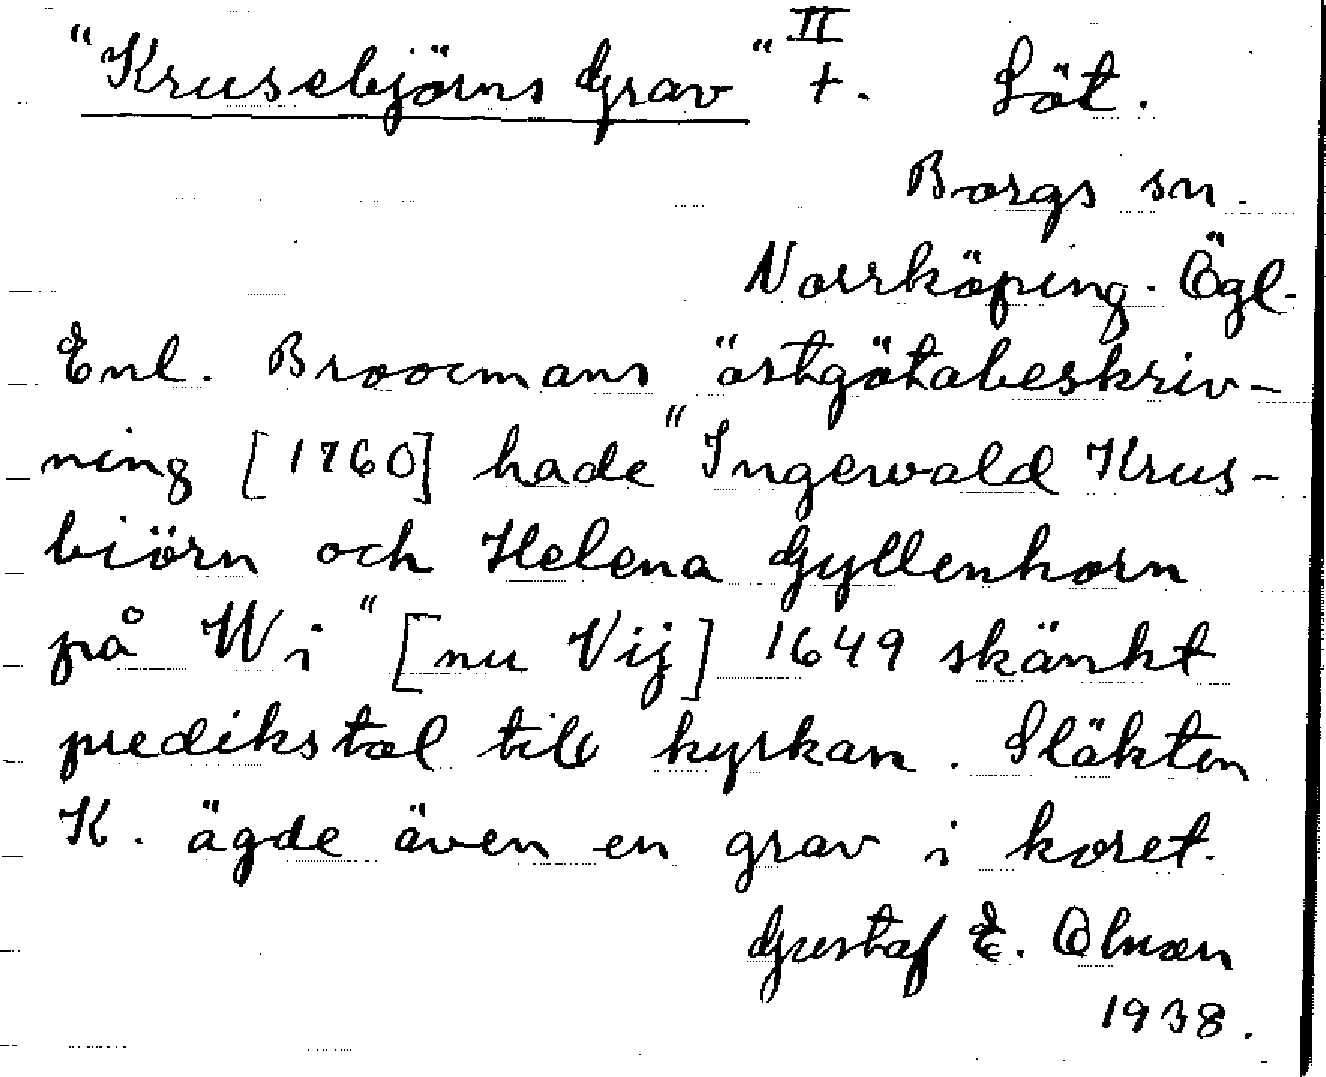 "Krusebjörns Grav" II +. Löt.
Borgs sn.
Norrköping. Ögl.
Enl. Broocmans östgötabeskriv-
ning [1760] hade "Ingewald Krus-
biörn och Helena Gyllenhorn
på Wi" [nu Vij] 1649 skänkt
predikstol till kyrkan. Släkten
K. ägde även en grav i koret.
Gustaf E. Olson
1938.